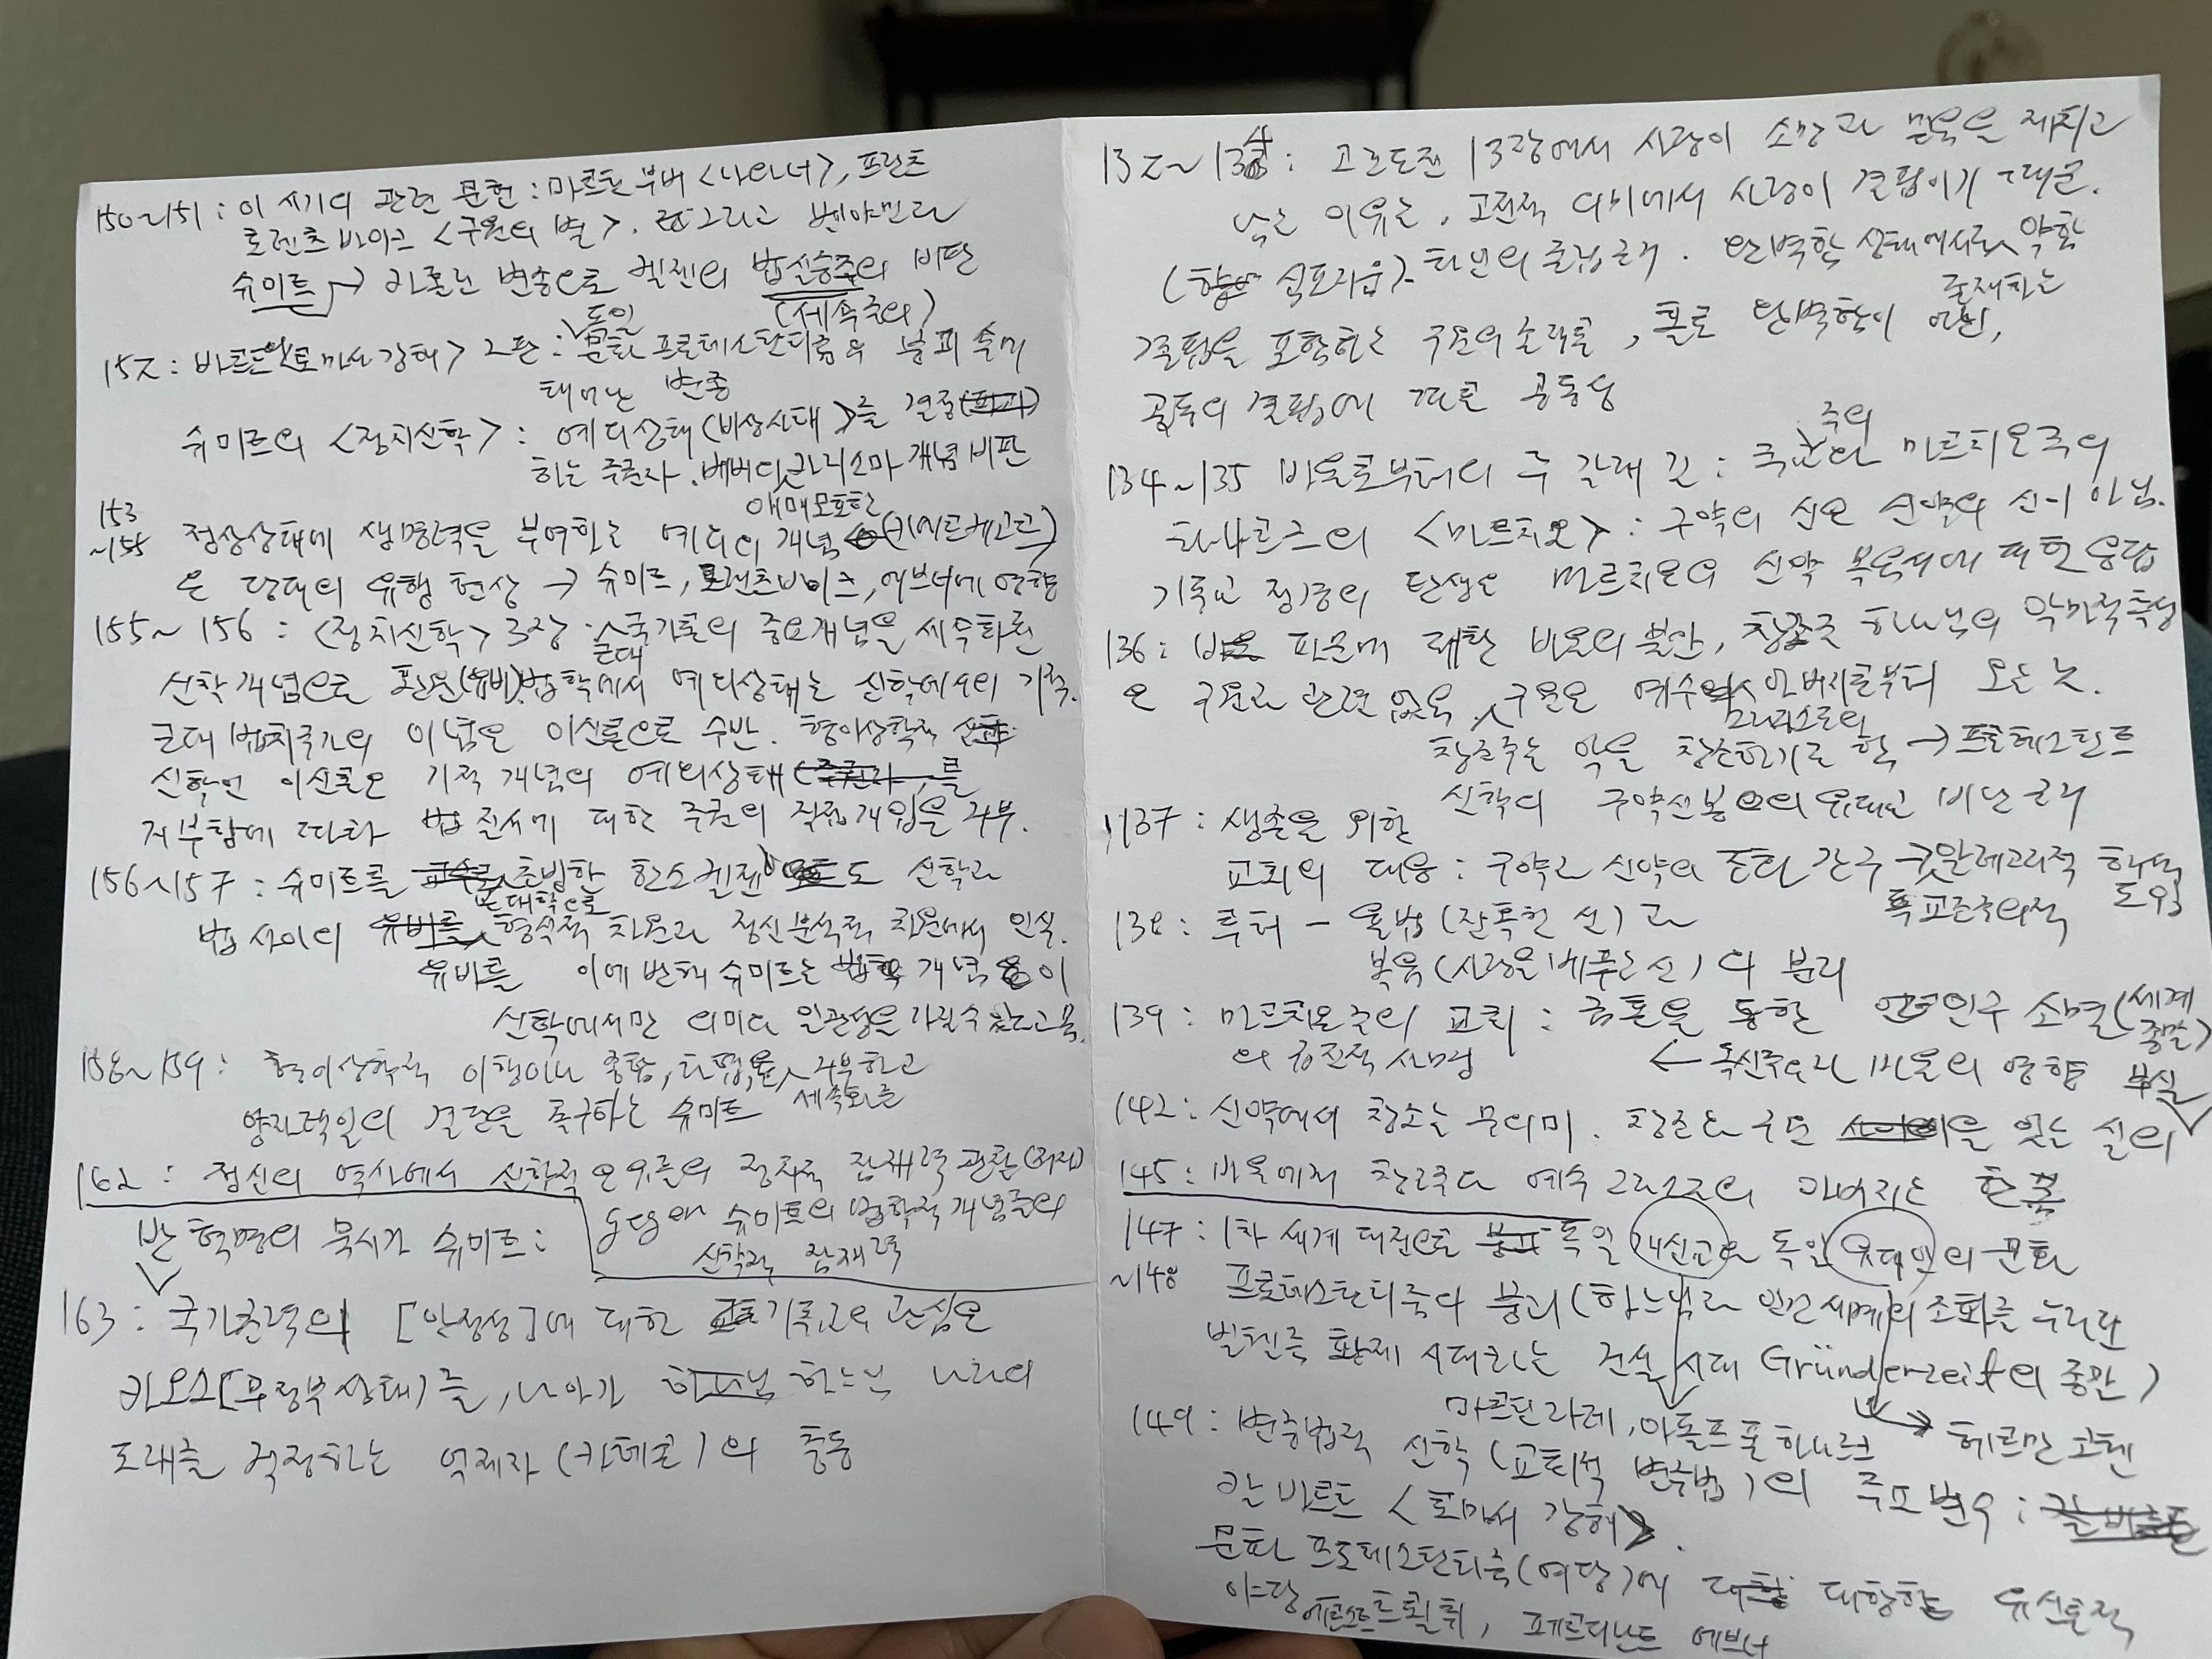 150~151 : 이 시기의 관련 문헌 : 마르틴 부버 <나와 너>, 프란츠
로젠츠바이크 <구원의 별>. 그리고 벤야민과
슈미트 → 바로크 변증으로 켈젠의 법실증주의 비판
(세속주의)
152 : 바르트 <로마서 강해> 2판 : 독일 문화 프로테스탄티즘의 붕괴 속에
태어난 변증
슈미트의 <정치신학> : 예외상태(비상사태)를 결정
하는 주권자. 베버의 카리스마 개념 비판
153
~155 정상상태에 생명력을 부여하는 예외의 애매모호한 개념 (키에르케고르)
은 당대의 유행 현상 → 슈미트, 로젠츠바이크, 에브너에 영향
155~156 : <정치신학> 3장 : 근대 국가론의 중요개념을 세속화된
신학 개념으로 환원(유비). 법학에서 예외상태는 신학에서의 기적.
근대 법치국가의 이념은 이신론으로 수반. 형이상학적
신학인 이신론은 기적 개념의 예외상태를
거부함에 따라 법 질서에 대한 주권의 직접개입을 거부.
156~157 : 슈미트를 초빙한 한스 켈젠도 신학과
법 사이의 유비를 방법학으로 형식적 차원과 정신분석적 차원에서 인식.
이에 반해 슈미트는 법학 개념이
신학에서만 의미와 일관성을 가질 수 있다고 봄.
158~159 : 형이상학적 이행이나 종합, 타협, 세속화를 거부하고
양자택일의 결단을 촉구하는 슈미트
162 : 정신의 역사에서 신학적 은유들의 정치적 잠재력 관찰(저자)
응답해 슈미트의 법학적 개념들의
신학적 잠재력
반혁명의 묵시가 슈미트 :
163 : 국가권력의 [안정성]에 대한 기독교의 관심은
카오스[무정부상태]를, 나아가 하느님 나라의
도래를 걱정하는 억제자(카테콘)의 충동
132~134 : 고린도전 13장에서 사랑이 소망과 믿음을 제치고
낳는 이유는, 고전적 의미에서 사랑이 결핍이기 때문.
(심포지움) 타인의 줄임 근거. 완벽한 상태에서도 약함
결핍을 포함하는 구원의 순간을, 홀로 완벽함이 존재하는 아닌,
공동의 결핍에 따른 공동성
134~135 바울로부터의 두 갈래 길 : 국교주의와 마르치온주의
하나크즈의 <마르치온> : 구약의 신은 신약의 신이 아님.
기독교 정경의 탄생은 마르치온의 신약 복음서에 대한 응답
136 : 파문에 대한 바울의 불안, 창조주 하나님의 악마적 측면
은 구원과 관련 없음. 구원은 예수 그리스도의 아버지로부터 오는 것.
창조주는 악을 창조하기도 함 → 프로테스탄트
신학의 구약신봉으의 유대교 비난 근거
137 : 생존을 위한
교회의 대응 : 구약과 신약의 조화 간구 → 알레고리적 해석
목교존주의적 도입
138 : 루터 – 율법(잔혹한 신)과
복음(사랑을 베푸는 신)의 분리
139 : 마르치온주의 교회 : 금혼을 통한 인구 소멸(세계
종말)
의 궁극적 사명 ← 독신주의과 바울의 영향
142 : 신약에서 창조는 무의미. 창조와 구원을 잇는 실의 부실
145 : 바울에게 창조주와 예수 그리스도의 아버지는 한 몸
147 : 1차 세계 대전으로 독일 개신교와 독일 유대인의 문화
~148 프로테스탄티즘의 붕괴(하느님과 인간세계의 조화를 누리던
빌헬름 황제 시대라는 건설 시대 Gründerzeit의 종말)
마르틴 라데, 아돌프 폰 하르낙 → 헤르만 코헨
149 : 변증법적 신학(교회적 변증법)의 주요 변수 :
칼 바르트 <로마서 강해>.
문화 프로테스탄티즘(여당)에 대항할 유신론적
야당 에른스트 트뢸취, 페르디난트 에브너